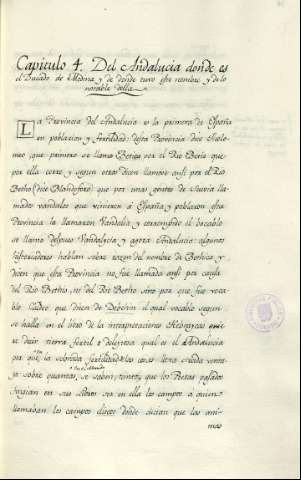 Capitulo 4. Del Andalucia donde es
el Ducado de Medina y de donde tuvo este nombre y de lo
notable della
La Provincia del Andalucia es la primera de España
en poblacion y fertilidad: desta Provincia dice
meo que primero se llamo Betica por el Rio Betis que
por ella corre, y segun otros dicen llamose ansi por el Rio
Betho (dice Mondoñedo) que por unas gentes de Suevia lla
mados vandalos que vinieron a España y poblaron esta
Provincia la llamaron Vandalia y corrompido el bocablo
se llamo despues Vandalucia y agora Andalucia: algunos
historiadores hablan sobre razon del nombre de Bethica y
dicen que esta Provincia no fue llamada ansi por causa
del Rio Bethis, ni del Rey Betho sino por que fue voca
blo Caldeo que dicen de el qual vocablo segun
se halla en el libro de la interpretaciones Hebraycas
decir tierra fertil e deleytosa qual es el Andalucia
por que la sobrada fertilidad las otras lleva cruda venta
ja sobre quantas en el mundo se saben; tanto, que los Poetas pasados
fingian en sus libros ser en ella los campos a quien
llamaban los campos eliseos donde dician que las ani
mas